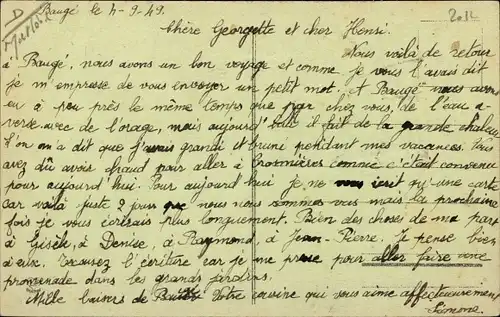 D
Baugé le 4-9-49.
2012
Chère Georgette et cher Henri.
Nous voilà de retour
à Baugé, nous avons un bon voyage et comme je vous l'avais dit
je m'empresse de vous envoyer un petit mot, et Baugé nous avons
eu à peu près le même temps que par chez vous, de l'eau a
verse avec de l'orage, mais aujourd'hui il fait de la grande chaleur
L'on m'a dit que j'avais grandi et bruni pendant mes vacances. Vous
avez dû avois chaud pour aller à comme c'était convenu
pour aujourd'hui. Pour aujourd'hui je ne vous écrit qu'une carte
car voilà juste 2 jours que nous nous sommes vous mais la prochaine
fois je vous écrirais plus longuement. Bien des choses de ma part
à Gisèle, à Denise, à Raymond, à Jean-Pierre. Je pense bien
à eux. Excusez l'écriture car je me presse pour aller faire une
promenade dans les grands jardins.
Mille baisers de Votre cousine qui vous aime affectueusement
Simone.